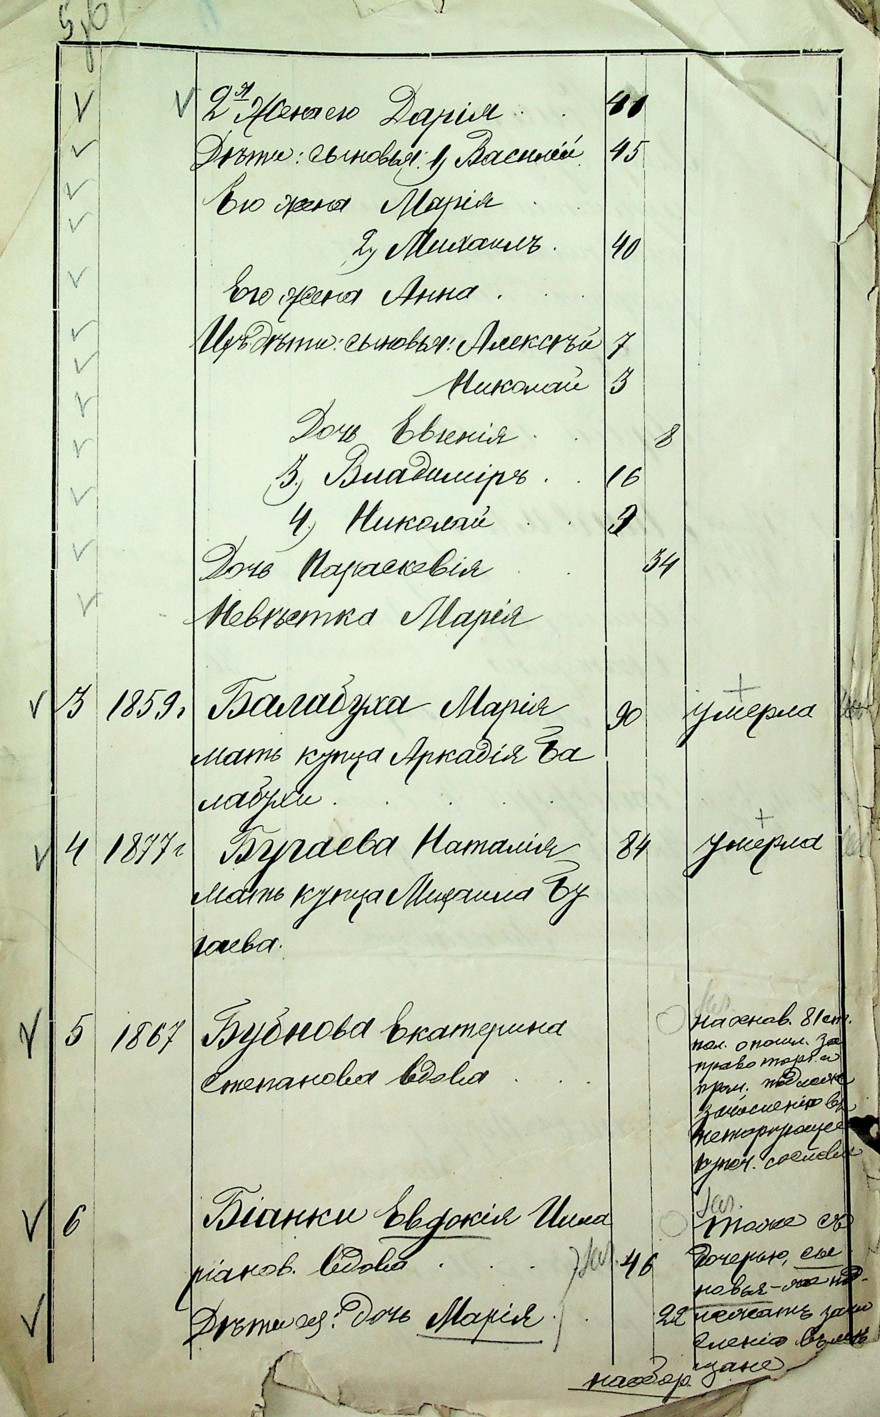 56
2я Жена его Дарія 41
Дѣти: сыновья: 1, Василій 45
Его жена Марія
2, Михаилъ 40
Его жена Анна
Ихъ дѣти: сыновья: Алексѣй 7
Николай 3
Дочь Евгенія 8
3, Владиміръ 16
4, Николай 9
Дочь Параскевія 34
Невѣстка Марія
3 1859г Балабуха Марія 90 умерла
мать купца Аркадія Ба
лабухи
4 1877г Бугаева Наталія 84 умерла
мать купца Михаила Бу
гаева.
5 1867 Бубнова Екатерина
Степановна вдова
На основ. 81 ст.
пол. о пошл. за
право торг. и
пром. подлеж
зачисленію въ
неторгующее
купеч. сословіе
6 Біанки Евдокія Илла
ріонов. вдова 46
Дѣти ея: дочь Марія 22
Тоже съ
дочерью, сы
новья-же под-
лежатъ зачи
сленію въ мѣ
щане
наобор.